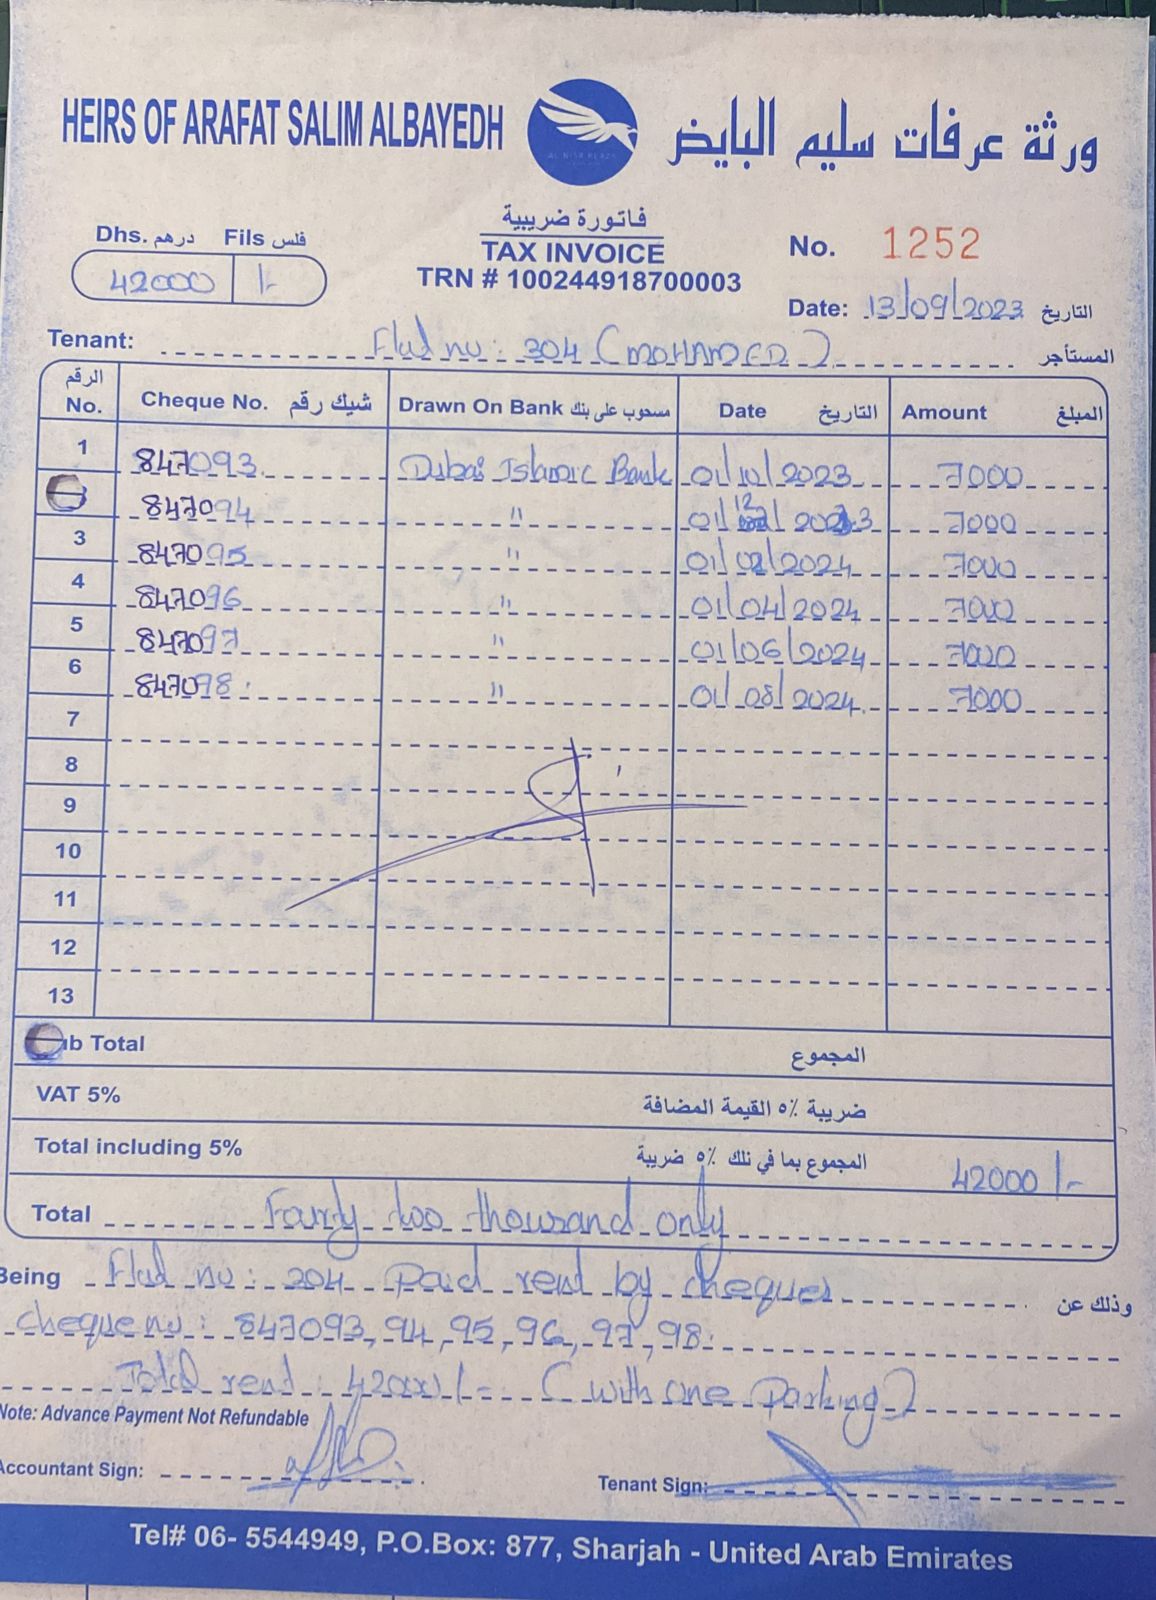 HEIRS OF ARAFAT SALIM ALBAYEDH
ورثة عرفات سليم البايض
AL NISR PLAZA
فاتورة ضريبية
TAX INVOICE
TRN # 100244918700003
Dhs. درهم Fils فلس
42000 /-
No. 1252
Date: 13/09/2023 التاريخ
Tenant: Flad no: 304 (MOHAMED) المستأجر
الرقم No. Cheque No. شيك رقم Drawn On Bank مسحوب على بنك Date التاريخ Amount المبلغ
1 847093 Dubai Islamic Bank 01/10/2023 7000
847094 " 01/12/2023 7000
3 847095 " 01/02/2024 7000
4 847096 " 01/04/2024 7000
5 847097 " 01/06/2024 7000
6 847098 " 01/08/2024 7000
7
8
9
10
11
12
13
ub Total المجموع
VAT 5% ضريبة ٥٪ القيمة المضافة
Total including 5% المجموع بما في تلك ٥٪ ضريبة 42000/-
Total Fourty two thousand only
Being Flad no: 304 Paid rend by cheques وذلك عن
cheque no: 847093, 94, 95, 96, 97, 98.
Total rend: 42000/- (with one Parking)
Note: Advance Payment Not Refundable
Accountant Sign:
Tenant Sign:
Tel# 06- 5544949, P.O.Box: 877, Sharjah - United Arab Emirates